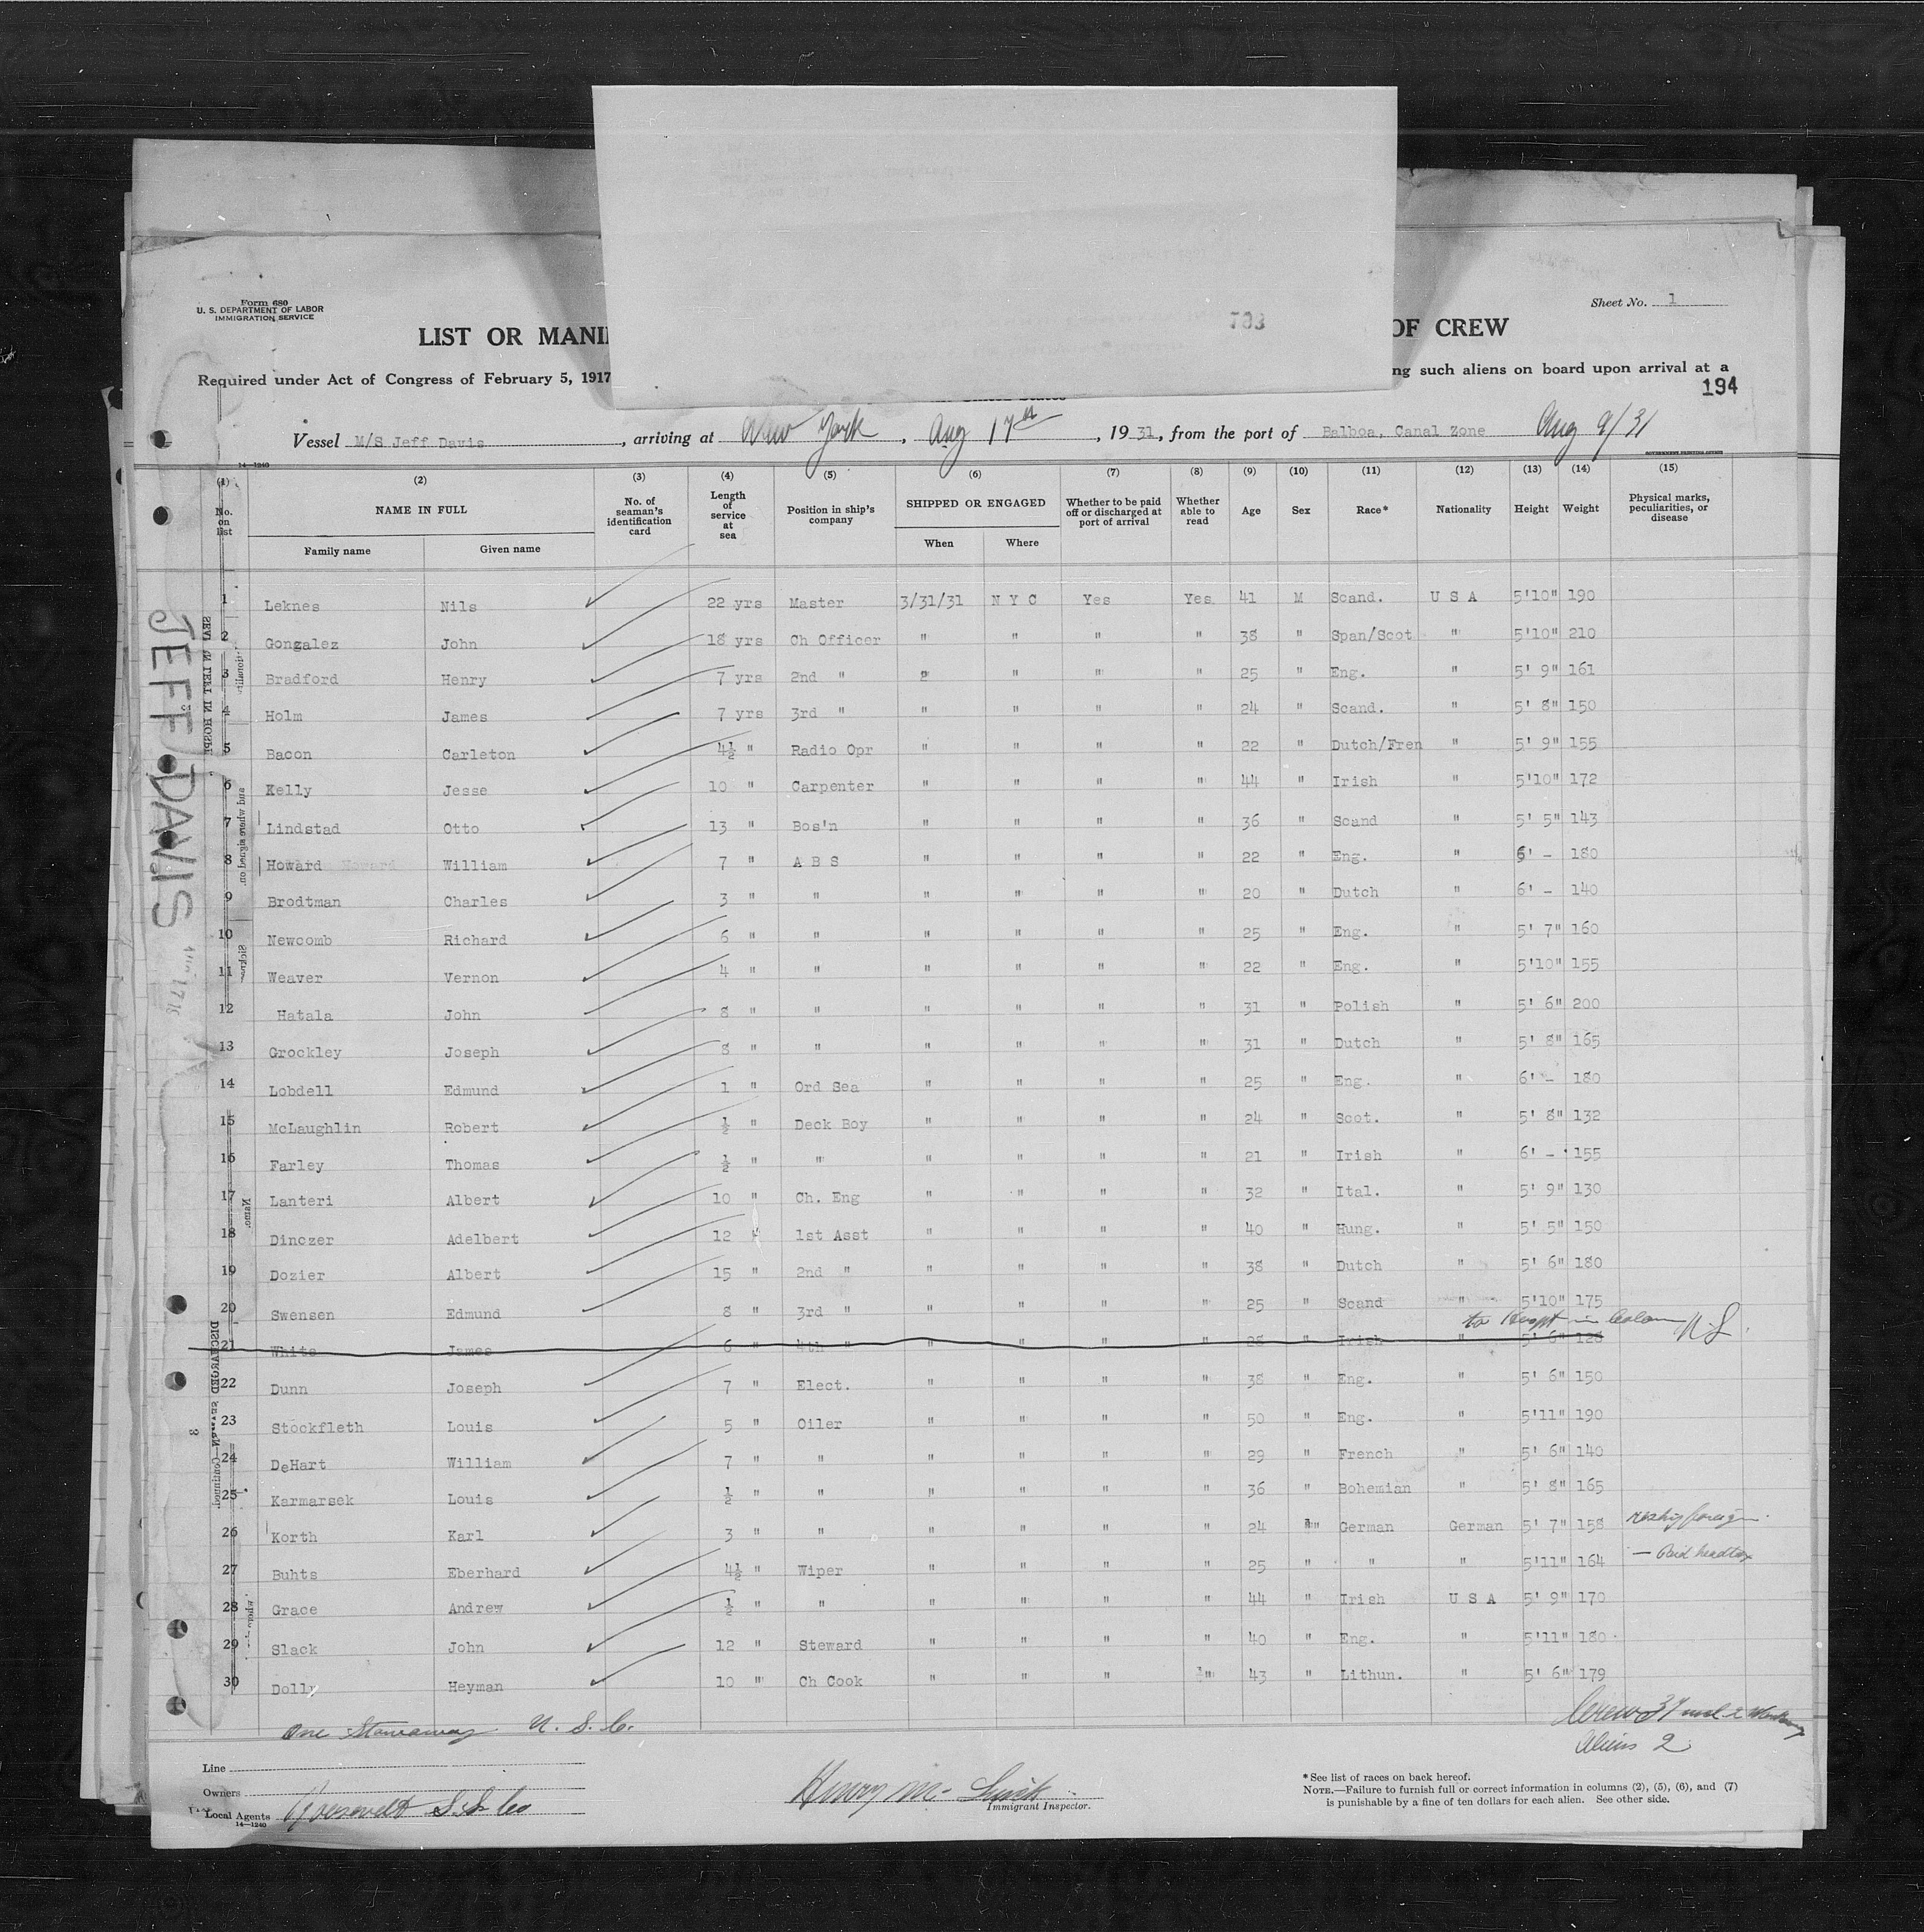 703
Form 680
U. S. DEPARTMENT OF LABOR
IMMIGRATION SERVICE
Sheet No. 1
LIST OR MANI OF CREW
Required under Act of Congress of February 5, 1917 ng such aliens on board upon arrival at a
194
Vessel M/S Jeff Davis, arriving at New York, Aug 17th, 1931, from the port of Balboa, Canal Zone Aug 9/31
14—1240
(1) (2) (3) (4) (5) (6) (7) (8) (9) (10) (11) (12) (13) (14) (15)
No. on list NAME IN FULL Family name Given name No. of seaman's identification card Length of service at sea Position in ship's company SHIPPED OR ENGAGED When Where Whether to be paid off or discharged at port of arrival Whether able to read Age Sex Race* Nationality Height Weight Physical marks, peculiarities, or disease
1 Leknes Nils 22 yrs Master 3/31/31 N Y C Yes Yes 41 M Scand. U S A 5'10" 190
2 Gongalez John 18 yrs Ch Officer " " " " 38 " Span/Scot " 5'10" 210
3 Bradford Henry 7 yrs 2nd " " " " " 25 " Eng. " 5' 9" 161
4 Holm James 7 yrs 3rd " " " " " 24 " Scand. " 5' 8" 150
5 Bacon Carleton 4½ " Radio Opr " " " " 22 " Dutch/Fren " 5' 9" 155
6 Kelly Jesse 10 " Carpenter " " " " 44 " Irish " 5'10" 172
7 Lindstad Otto 13 " Bos'n " " " " 36 " Scand " 5' 5" 143
8 Howard William 7 " A B S " " " " 22 " Eng. " 6' - 180
9 Brodtman Charles 3 " " " " " " 20 " Dutch " 6' - 140
10 Newcomb Richard 6 " " " " " " 25 " Eng. " 5' 7" 160
11 Weaver Vernon 4 " " " " " " 22 " Eng. " 5'10" 155
12 Hatala John 8 " " " " " " 31 " Polish " 5' 6" 200
13 Grockley Joseph 8 " " " " " " 31 " Dutch " 5' 8" 165
14 Lobdell Edmund 1 " Ord Sea " " " " 25 " Eng. " 6' - 180
15 McLaughlin Robert ½ " Deck Boy " " " " 24 " Scot. " 5' 8" 132
16 Farley Thomas ½ " " " " " " 21 " Irish " 6' - 155
17 Lanteri Albert 10 " Ch. Eng " " " " 32 " Ital. " 5' 9" 130
18 Dinczer Adelbert 12 " 1st Asst " " " " 40 " Hung. " 5' 5" 150
19 Dozier Albert 15 " 2nd " " " " " 38 " Dutch " 5' 6" 180
20 Swensen Edmund 8 " 3rd " " " " " 25 " Scand " 5'10" 175
to Hospt in Colon N.L.
21 White James 6 " 4th " " " " " 28 " Irish " 5' 6" 128
22 Dunn Joseph 7 " Elect. " " " " 38 " Eng. " 5' 6" 150
23 Stockfleth Louis 5 " Oiler " " " " 50 " Eng. " 5'11" 190
24 DeHart William 7 " " " " " " 29 " French " 5' 6" 140
25 Karmarsek Louis ½ " " " " " " 36 " Bohemian " 5' 8" 165
26 Korth Karl 3 " " " " " " 24 " German German 5' 7" 158 reship foreign.
27 Buhts Eberhard 4½ " Wiper " " " " 25 " " " 5'11" 164 — Paid headtax
28 Grace Andrew ½ " " " " " " 44 " Irish U S A 5' 9" 170
29 Slack John 12 " Steward " " " " 40 " Eng. " 5'11" 180
30 Dolly Heyman 10 " Ch Cook " " " " 43 " Lithun. " 5' 6" 179
One Stowaway U. S. C.
Crew 37 incl 2
Aliens 2
Line
Owners
Local Agents Roosevelt S.S. Co
14—1240
Henry M.
Immigrant Inspector.
*See list of races on back hereof.
NOTE.—Failure to furnish full or correct information in columns (2), (5), (6), and (7)
is punishable by a fine of ten dollars for each alien. See other side.
JEFF DAVIS